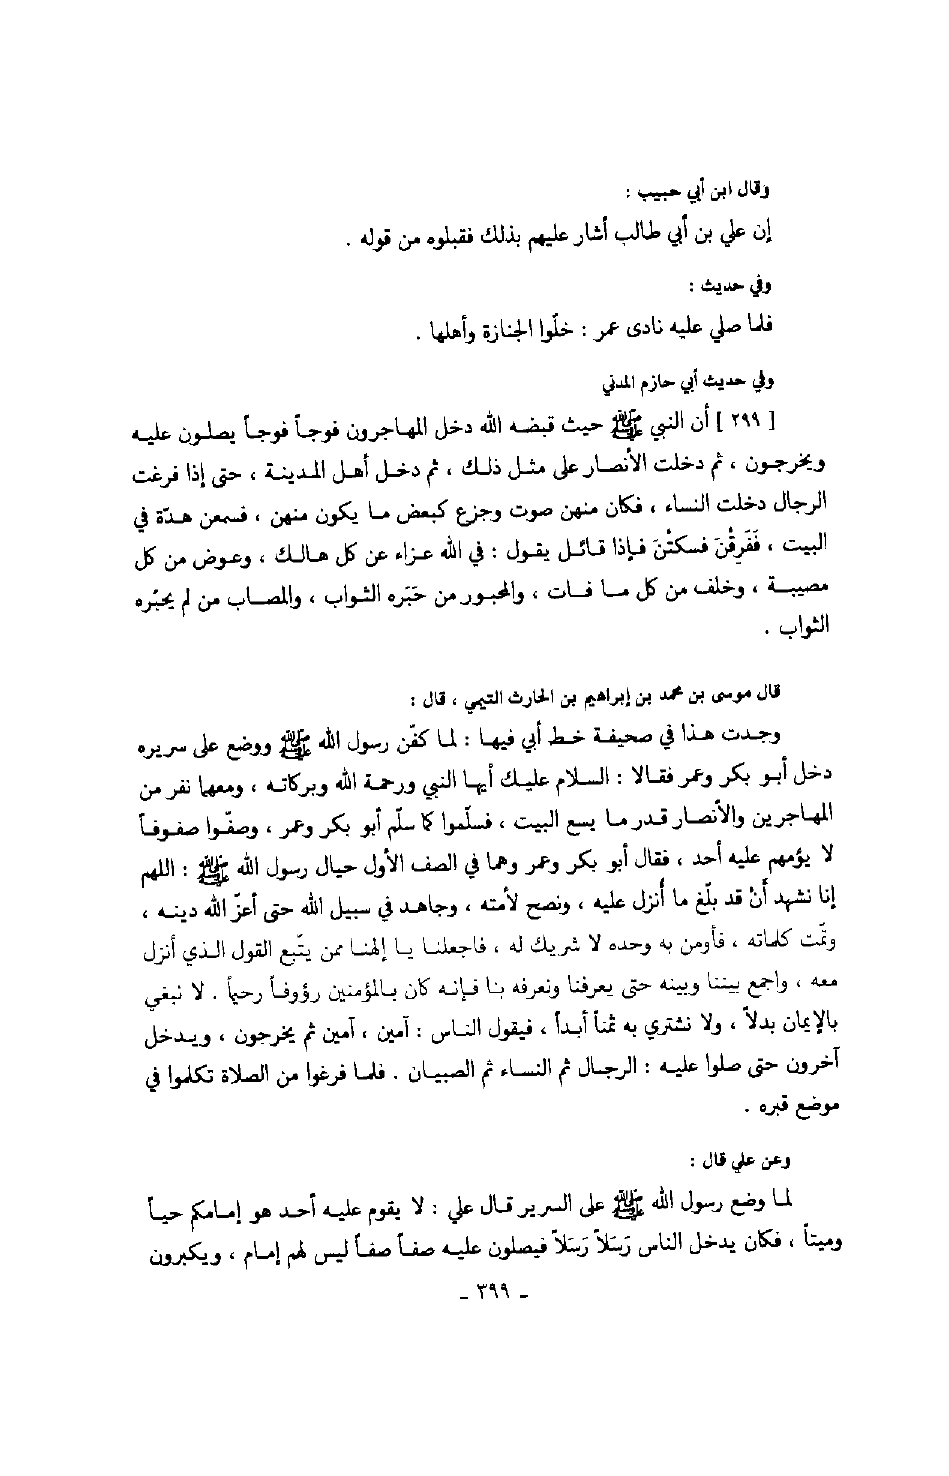 وقال ابن أبي حبيب :
إن علي بن أبي طالب أشار عليهم بذلك فقبلوه من قوله .
وفي حديث :
فلما صلي عليه نادى عمر : خلّوا الجنازة وأهلها .
وفي حديث أبي حازم المدني
[ ٢٩٩ ] أن النبي ﷺ حيث قبضه الله دخل المهاجرون فوجاً فوجاً يصلون عليه
ويخرجون ، ثم دخلت الأنصار على مثل ذلك ، ثم دخل أهل المدينة ، حتى إذا فرغت
الرجال دخلت النساء ، فكان منهن صوت وجزع كبعض ما يكون منهن ، فسمعن هدّة في
البيت ، فَفَرِقْنَ فسكتْنَ فإذا قائل يقول : في الله عزاء عن كل هالك ، وعوض من كل
مصيبة ، وخلف من كل ما فات ، والمجبور من جَبَره الثواب ، والمصاب من لم يجبُره
الثواب .
قال موسى بن محمد بن إبراهيم بن الحارث التيمي ، قال :
وجدت هذا في صحيفة خط أبي فيها : لما كفّن رسول الله ﷺ ووضع على سريره
دخل أبو بكر وعمر فقالا : السلام عليك أيها النبي ورحمة الله وبركاته ، ومعهما نفر من
المهاجرين والأنصار قدر ما يسع البيت ، فسلّموا كما سلّم أبو بكر وعمر ، وصفّوا صفوفاً
لا يؤمهم عليه أحد ، فقال أبو بكر وعمر وهما في الصف الأول حيال رسول الله ﷺ : اللهم
إنا نشهد أنْ قد بلّغ ما أُنزل عليه ، ونصح لأمته ، وجاهد في سبيل الله حتى أعزّ الله دينه ،
وتمّت كلماته ، فأومن به وحده لا شريك له ، فاجعلنا يا إلهنا ممن يتّبع القول الذي أنزل
معه ، واجمع بيننا وبينه حتى يعرفنا ونعرفه بنا فإنه كان بالمؤمنين رؤوفاً رحيماً . لا نبغي
بالإيمان بدلاً ، ولا نشتري به ثمناً أبداً ، فيقول الناس : آمين ، آمين ثم يخرجون ، ويدخل
آخرون حتى صلوا عليه : الرجال ثم النساء ثم الصبيان . فلما فرغوا من الصلاة تكلموا في
موضع قبره .
وعن علي قال :
لما وضع رسول الله ﷺ على السرير قال علي : لا يقوم عليه أحد هو إمامكم حياً
وميتاً ، فكان يدخل الناس رَسَلاً رَسَلاً فيصلون عليه صفاً صفاً ليس لهم إمام ، ويكبرون
- ٣٩٩ -